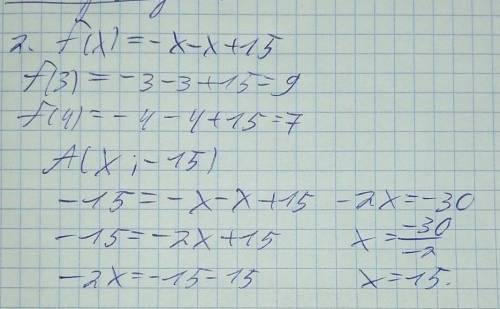 2. f(x) = -x-x+15
f(3) = -3-3+15=9
f(4) = -4-4+15=7
A(x;-15)
-15=-x-x+15
-15=-2x+15
-2x=-15-15
-2x=-30
x=-30/-2
x=15.